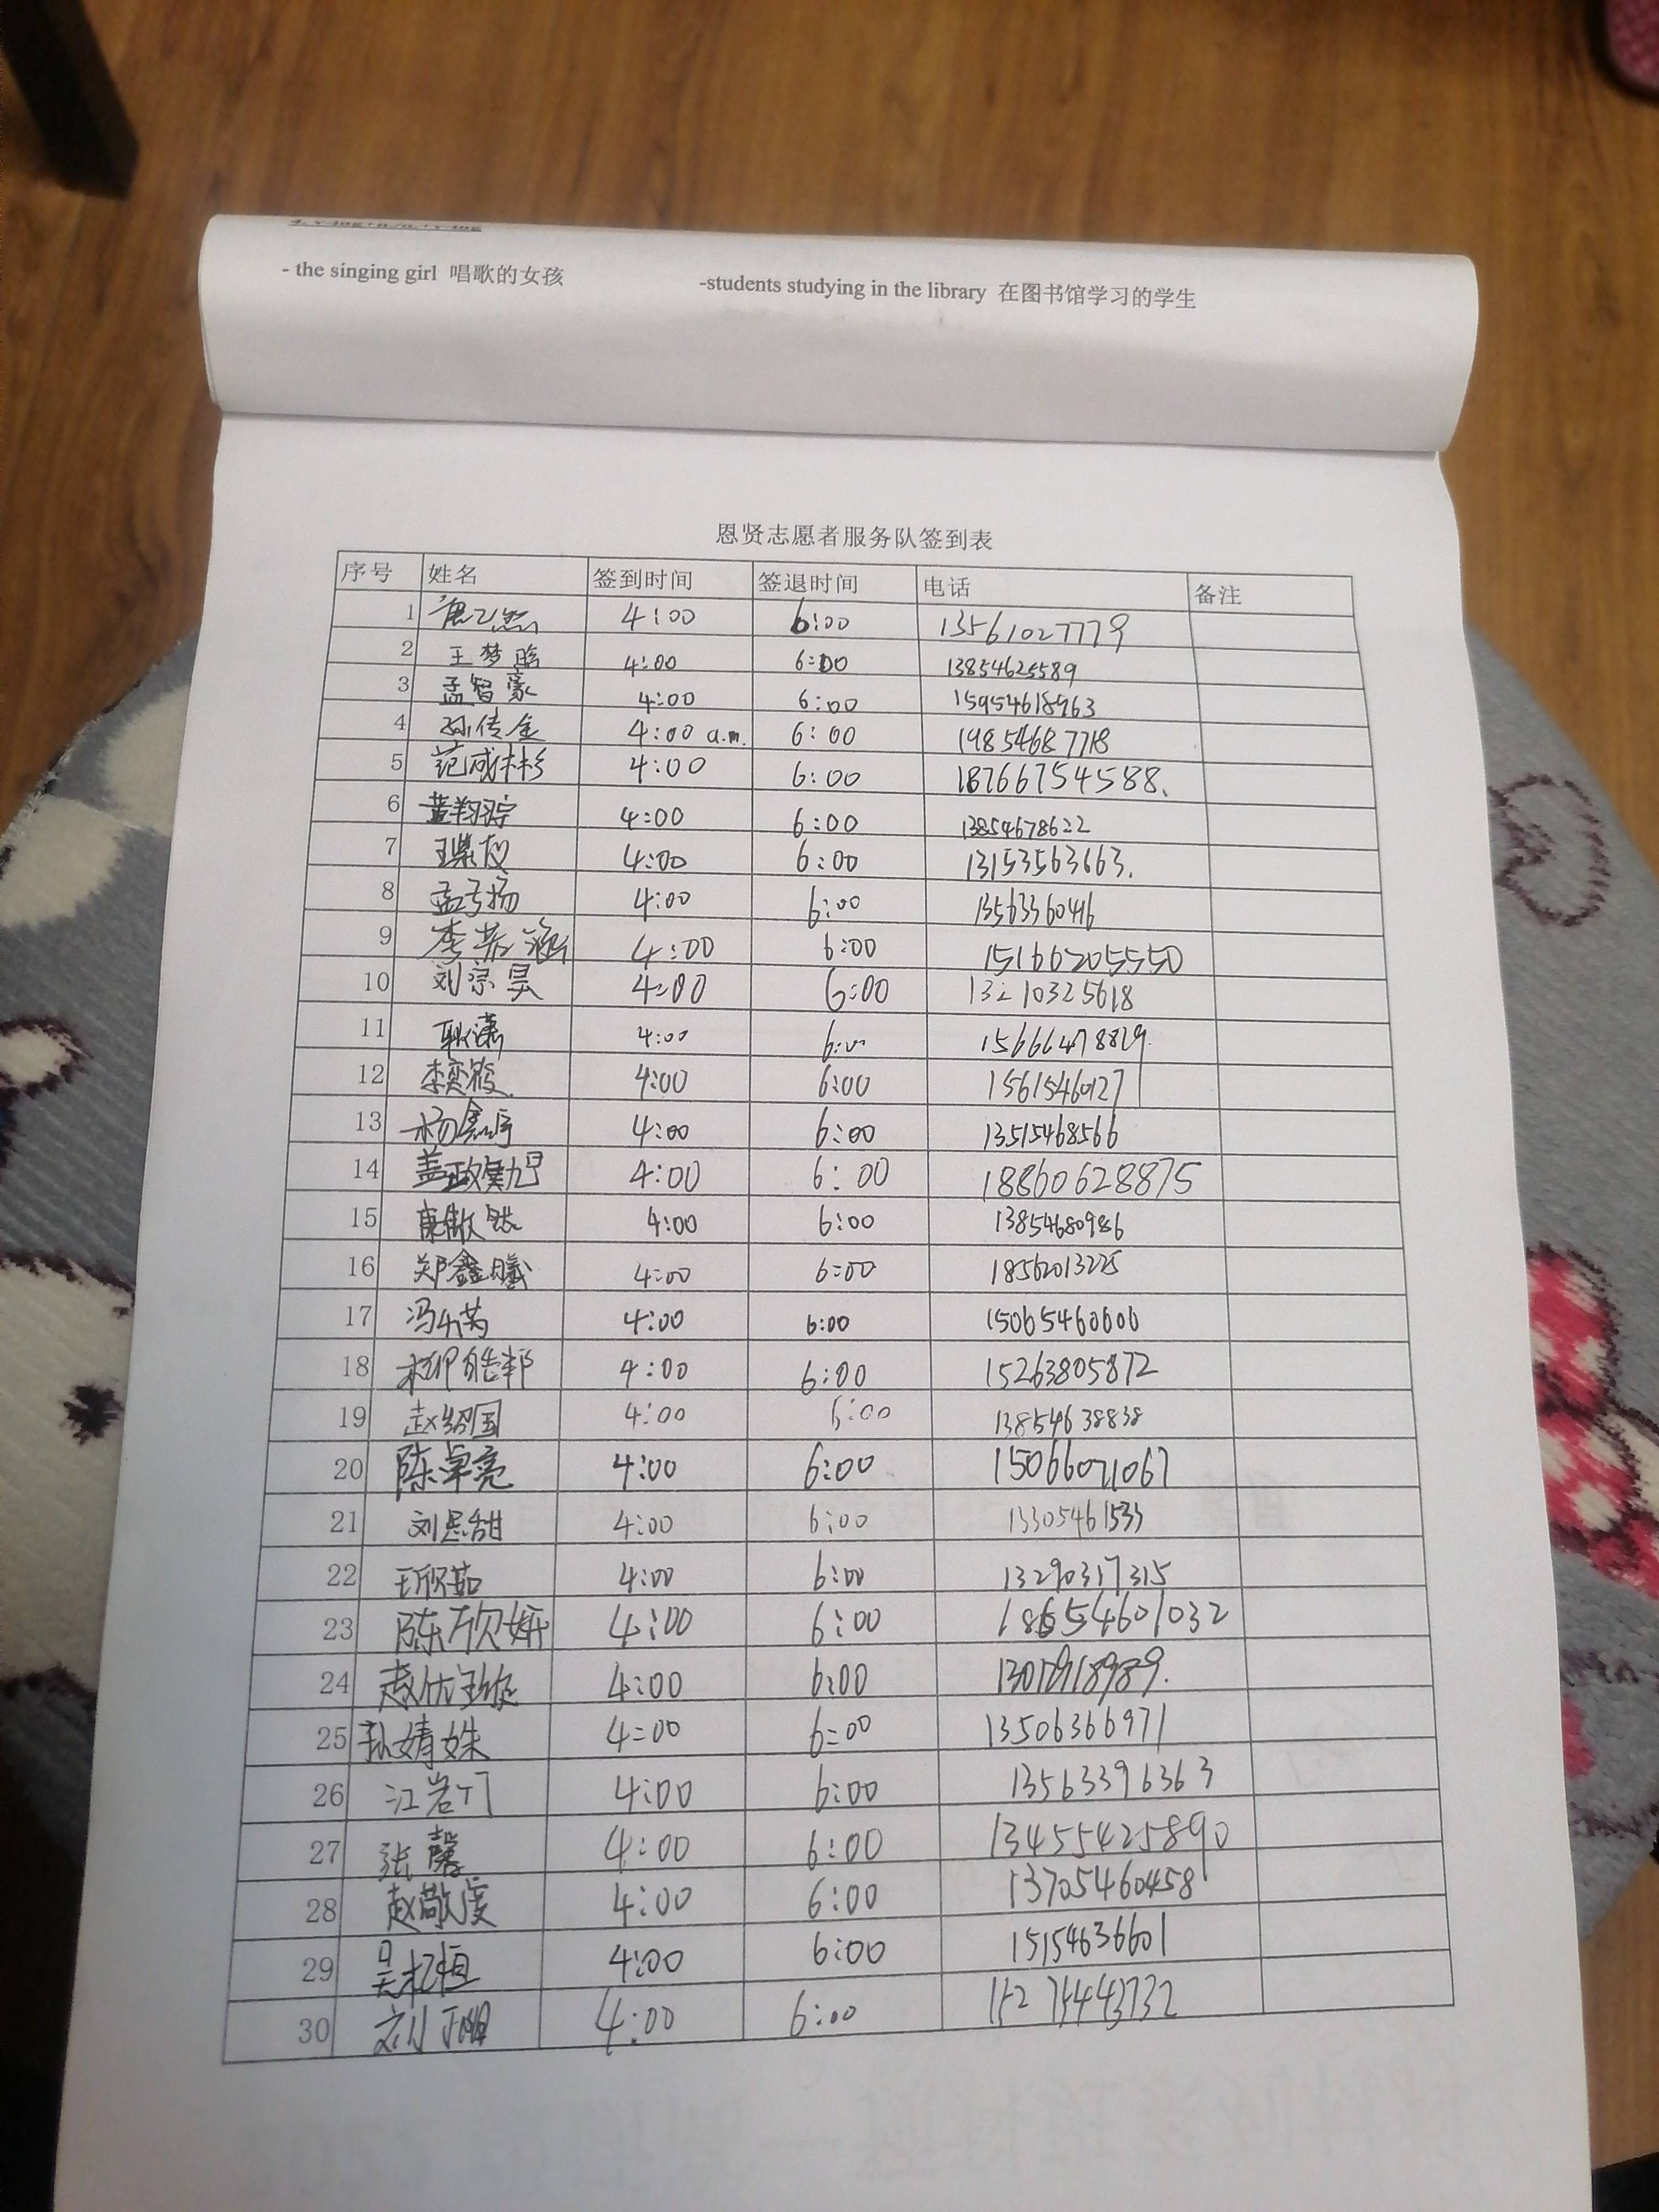 - the singing girl 唱歌的女孩 -students studying in the library 在图书馆学习的学生
恩贤志愿者服务队签到表
序号 姓名 签到时间 签退时间 电话 备注
1 4:00 6:00 13561027779
2 王梦晗 4:00 6:00 13854625589
3 孟智豪 4:00 6:00 15954618963
4 孙传金 4:00 a.m. 6:00 19854687718
5 范咸彬 4:00 6:00 18766754588.
6 4:00 6:00 13854678622
7 4:00 6:00 13153563663.
8 孟子扬 4:00 6:00 13563360416
9 李 涵 4:00 6:00 15166205550
10 刘宗昊 4:00 6:00 13210325618
11 耿潇 4:00 15666478829
12 李奕筱 4:00 6:00 15615460127
13 杨鑫宇 4:00 6:00 13515468566
14 盖政 4:00 6:00 18860628875
15 康 4:00 6:00 13854680986
16 郑鑫曦 4:00 6:00 18562013225
17 冯 4:00 6:00 15065460606
18 柳皓邦 4:00 6:00 15263805872
19 赵绍国 4:00 6:00 13854638838
20 陈卓亮 4:00 6:00 15066071067
21 刘思甜 4:00 6:00 13305461533
22 王欣茹 4:00 6:00 13290317315
23 陈欣妍 4:00 6:00 18654601032
24 4:00 6:00
25 孙婧姝 4:00 6:00 13506366971
26 江岩 4:00 6:00 13563396363
27 张馨 4:00 6:00 13455425890
28 赵敬虔 4:00 6:00 13705460458
29 吴松恒 4:00 6:00 15154636601
30 4:00 6:00